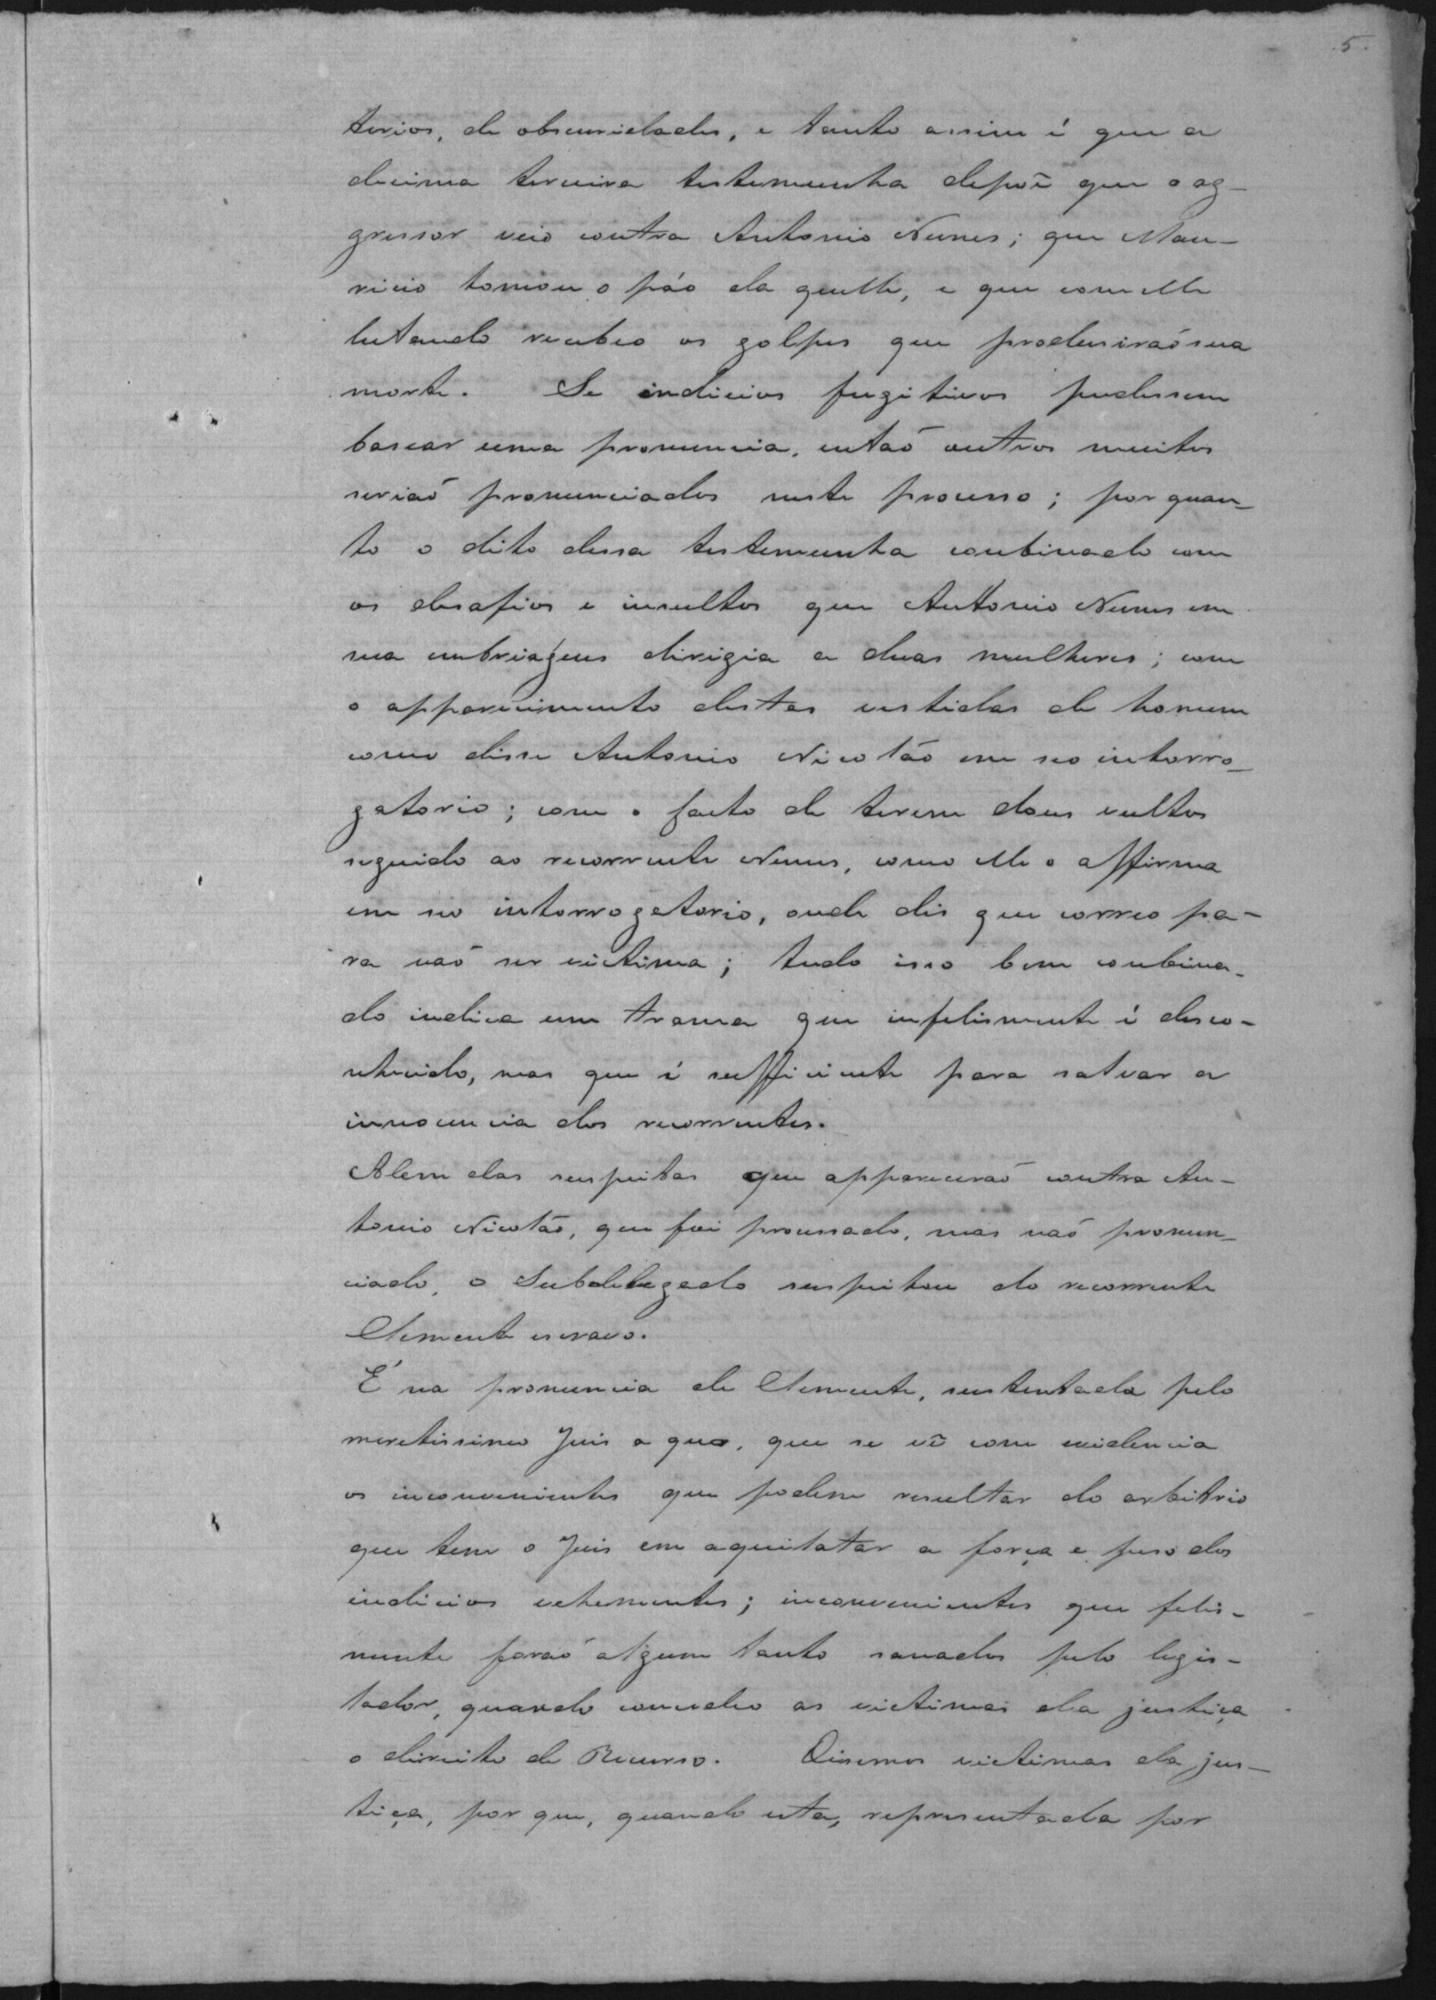 5.
terios, de obscuridades, e tanto assim é que a
decima terceira testemunha depoê que o ag-
gressor veio contra Antonio Nunes; que Mau-
ricio tomou o páo da quelle, e que com elle
lutando recebeo os golpes que produsiraó sua
morte. Se indicios fugitivos pudessem
basear uma pronuncia, entaó outros muitos
seriaó pronunciados neste processo; por quan-
to o dito dessa testemunha conbinado com
os desafios e insultos que Antonio Nunes em
sua embriagues dirigia a duas mulheres; com
o apparecimento destas vestidas de homem
como disse Antonio Nicoláo em seo intorro-
gatorio; com o facto de terem dous vultos
seguido ao recorrente Nunes, como elle o affirma
em seo intorrogatorio, onde dis que correo pa-
ra naó ser victima; tudo isso bem conbina-
do indica um trama que infelismente é desco-
nhecido, mas que é sufficiente para salvar a
innocencia dos recorrentes.
Alem das suspeitas que appareceraó contra An-
tonio Nicoláo, que foi processado, mas naó pronun-
ciado, o Subdelegado suspeitou do recorrente
Clemente escravo.
É na pronuncia de Clemente, sustentada pelo
meretissimo Juis a quo, que se vê com evidencia
os inconvenientes que podem resultar do arbitrio
que tem o Juis em aquilatar a força e peso dos
indicios vehementes; inconvenientes que felis-
mente foraó algum tanto sanados pelo legis-
lador, quando concedeo as victimas da justiça
o direito de Recurso. Disemos victimas da jus-
tiça, por que, quando esta, representada por